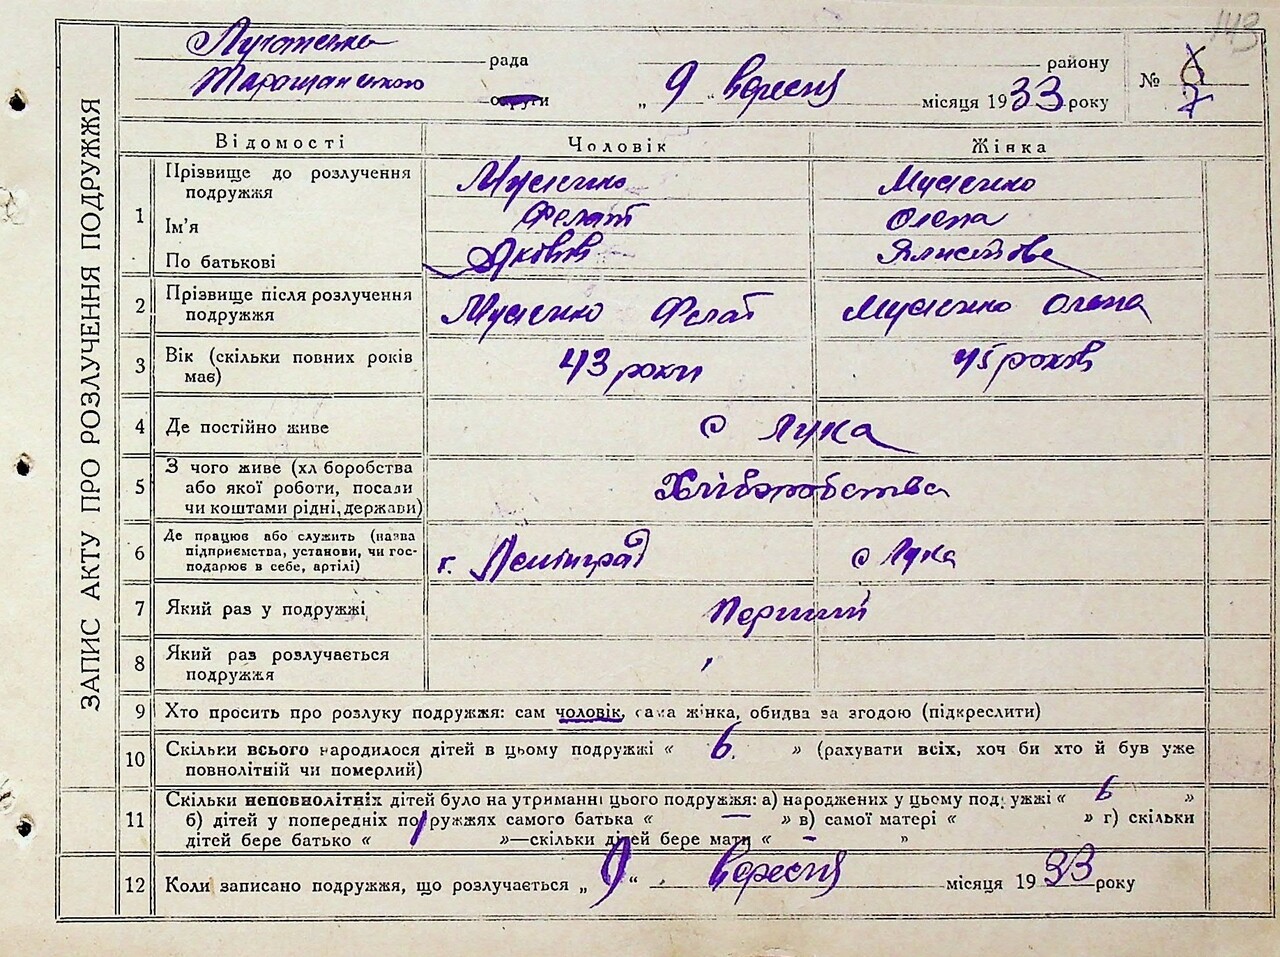 143
ЗАПИС АКТУ ПРО РОЗЛУЧЕННЯ ПОДРУЖЖЯ
рада району
округи „ 9 “ вересня місяця 1933 року № 7
Відомості Чоловік Жінка
1 Прізвище до розлучення подружжя Мусієнко Мусієнко
Ім'я Филат Олена
По батькові Яковів
2 Прізвище після розлучення подружжя Мусієнко Филат Мусієнко Олена
3 Вік (скільки повних років має) 43 роки 45 років
4 Де постійно живе с Лука
5 З чого живе (хл боробства
або якої роботи, посади
чи коштами рідні, держави) Хліборобства
6 Де працює або служить (назва
підприємства, установи, чи гос-
подарює в себе, артілі) г. Ленінград с Лука
7 Який раз у подружжі Перший
8 Який раз розлучається
подружжя
9 Хто просить про розлуку подружжя: сам чоловік, сама жінка, обидва за згодою (підкреслити)
10 Скільки всього народилося дітей в цьому подружжі « 6. » (рахувати всіх, хоч би хто й був уже
повнолітній чи померлий)
11 Скільки неповнолітніх дітей було на утриманні цього подружжя: а) народжених у цьому подружжі « 6 »
б) дітей у попередніх подружжях самого батька « — » в) самої матері « » г) скільки
дітей бере батько « » — скільки дітей бере мати « - »
12 Коли записано подружжя, що розлучається „ 9 “ вересня місяця 1933 року